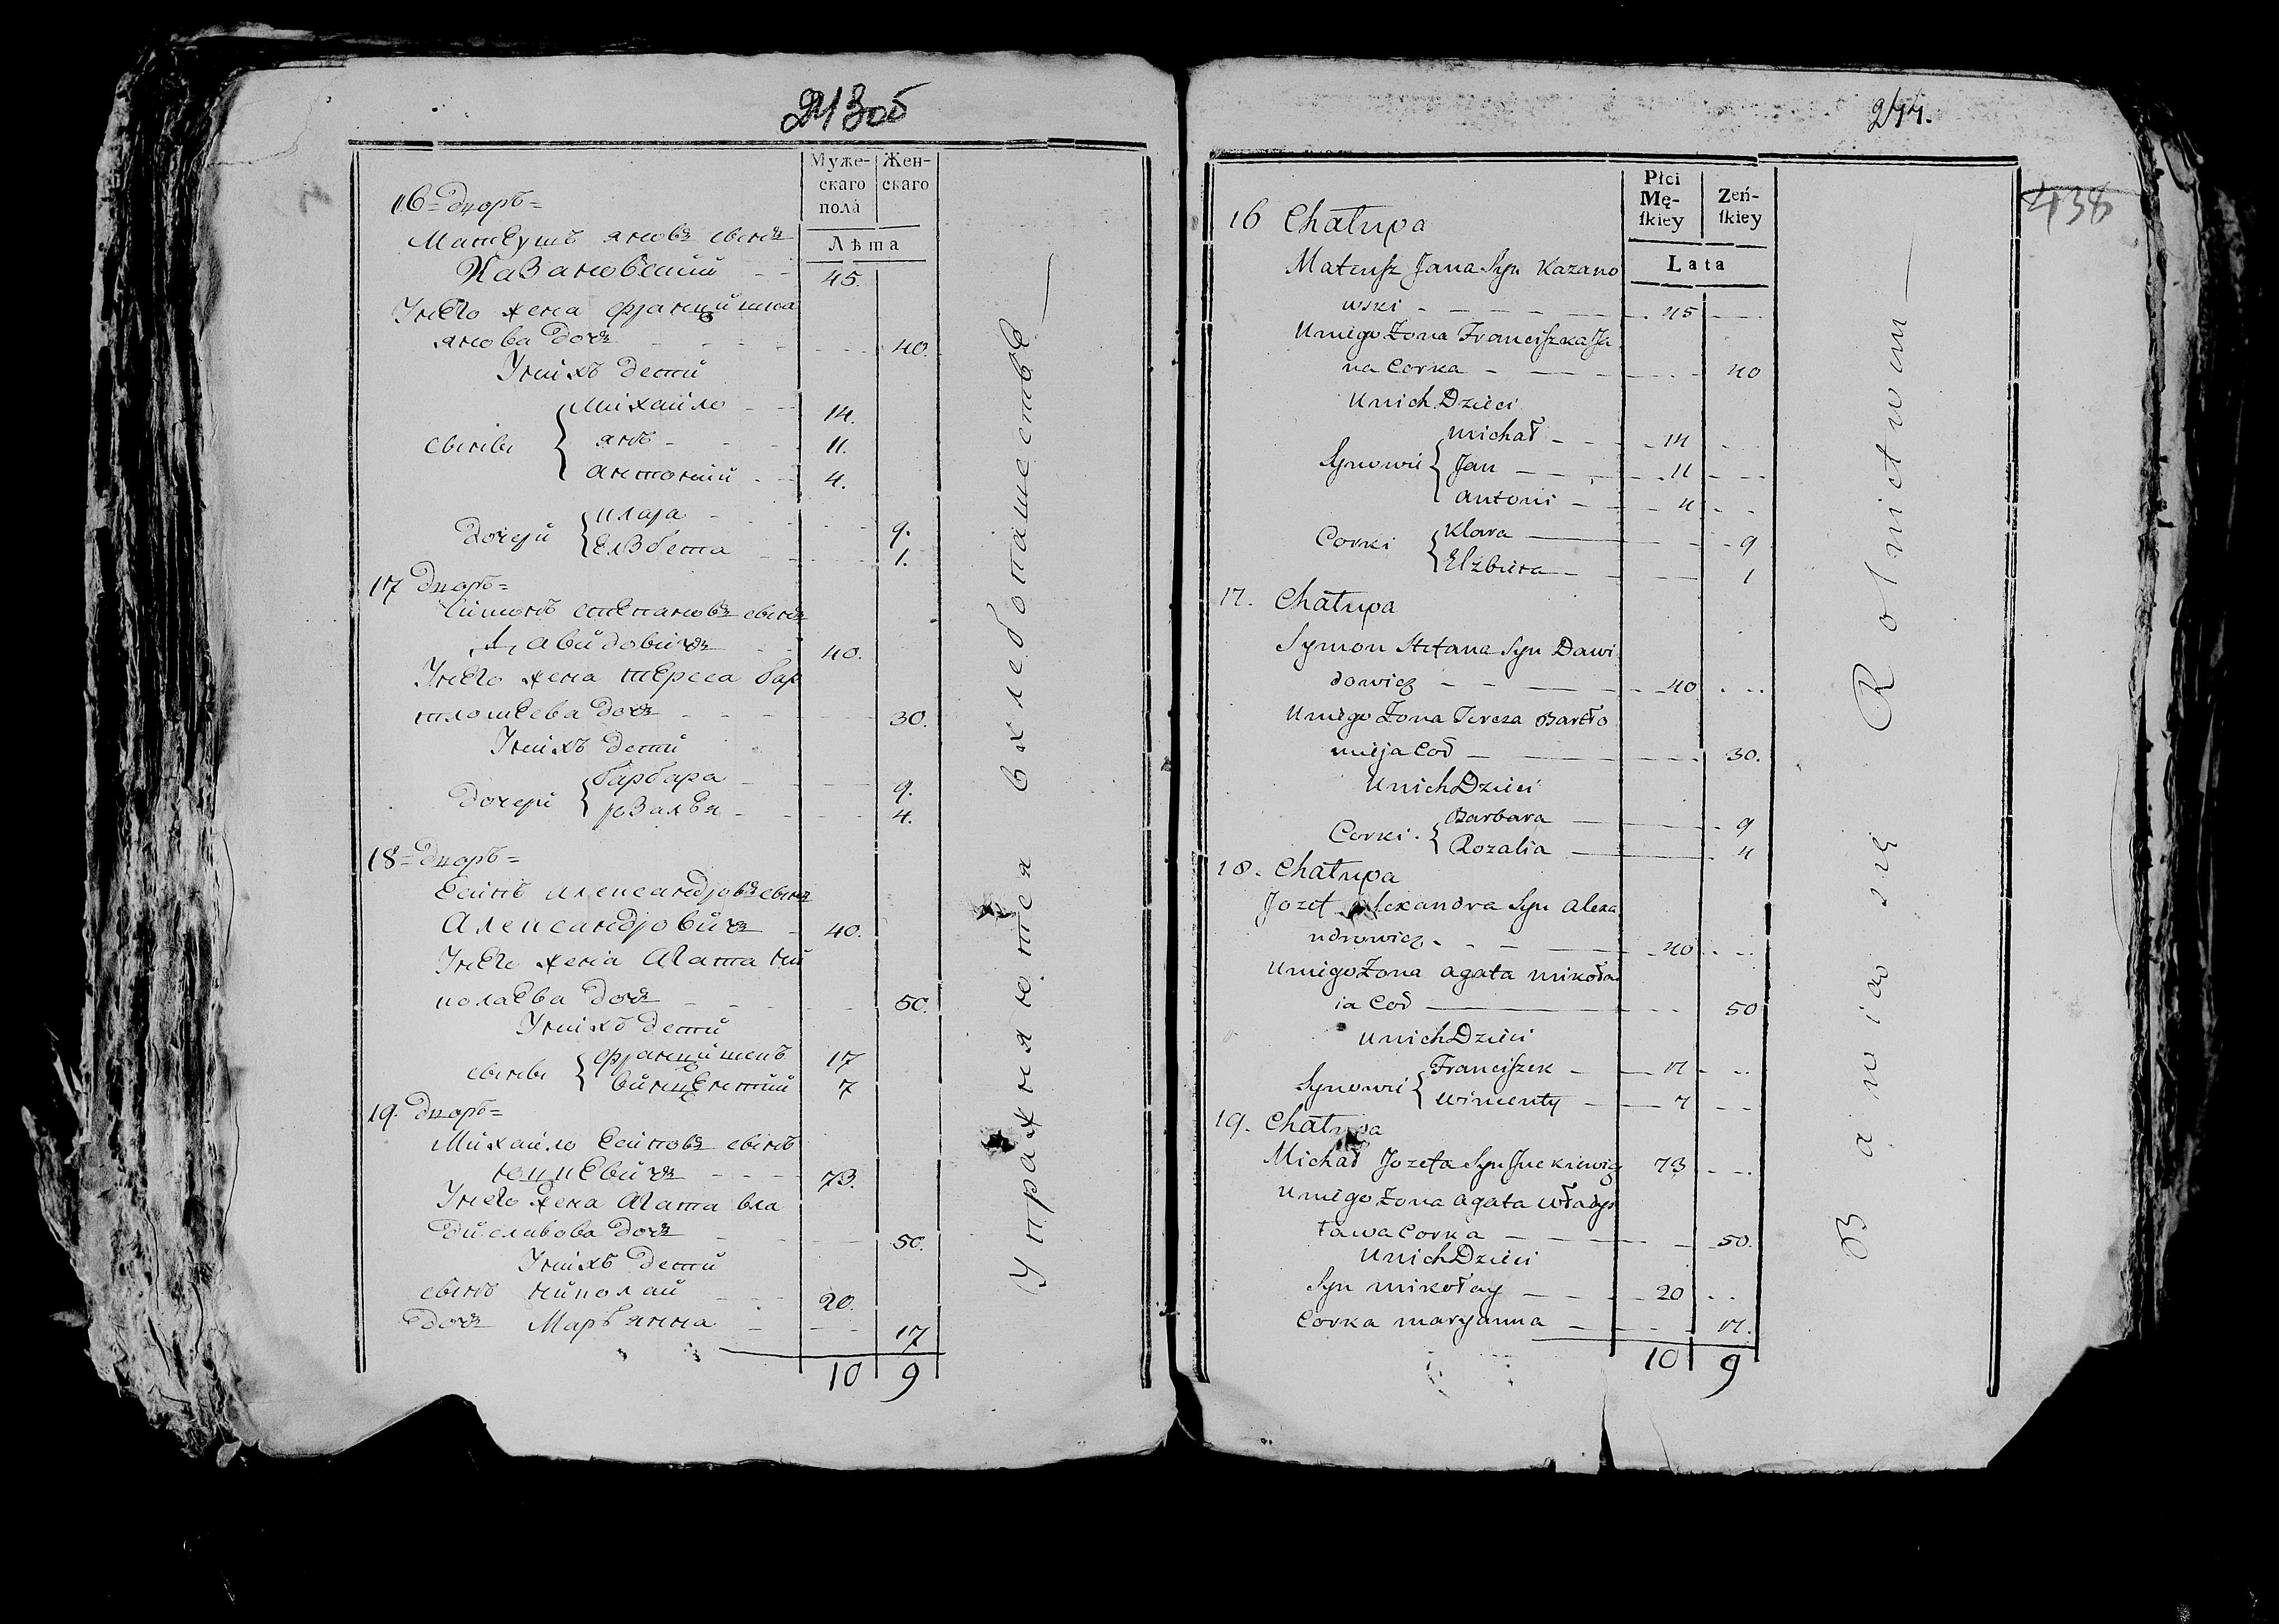 243об
Муже-
скаго
пола
Жен-
скаго
Лѣта
16 = Дворъ =
Матеушъ яновъ сынъ
Казановский - - 45.
У него жена францишка
янова дочь - - - 40.
У нихъ дети
Михайло - - 14.
сыны янъ - - - 11.
антоний - - 4.
дочери клара - - - 9.
Елзбета - - - 1.
17 Дворъ =
Симонъ степановъ сынъ
Давидовичъ - - 40.
У него жена тереса бар
тломеева дочь - - - 30.
У нихъ дети
дочери барбара - - - 9.
розалия - - - 4.
18 = Дворъ =
Есипъ александровъ сынъ
Александровичъ - 40.
У него жена Агата ни
колаева дочь - - - 50.
У нихъ дети
сыны францишекъ 17
винцентий 7
19. Дворъ =
Михайло Есиповъ сынъ
юцкевичъ - - - 73.
У него жена Агата вла
диславова дочь - - - 50.
У нихъ дети
сынъ николай - - - 20.
дочь Марьянна - - - 17
10 9
Упражняются в хлебопашестве
244.
438
Płci
Mę-
ſkiey
Zeń-
ſkiey
Lata
16 Chałupa
Mateuſz Jana Syn Kazano
wski - - - - - 45 - -
U niego Żona Franciſzka Ja
na Corka - - - - 40
U nich Dzieci
Michał - - - 14 - -
Synowie Jan - - - 11 - -
Antoni - - - 4 - -
Corki Klara - - - 9
Elzbieta - - - 1
17. Chałupa
Symon Stefana Syn Dawi
dowicz - - - - 40 - -
U niego Żona Teresa Bartło
mieja Cod - - - 30.
U nich Dzieci
Corki. Barbara - - - 9
Rozalia - - - 4
18. Chałupa
Jozef Alexandra Syn Alexa
ndrowicz - - - 40 - -
U niego Żona Agata Mikoła
ia Cod - - - 50
U nich Dzieci
Franciſzek - - 17 - -
Synowie Wincenty - - 7 - -
19. Chałupa
Michał Jozefa Syn Juckiewicz 73 - -
U niego Żona Agata Władys
ława Corka - - - 50.
U nich Dzieci
Syn Mikołay - - - 20 - -
Corka Maryanna - - - 17.
10 9
Bawiąo się Rolnictwem